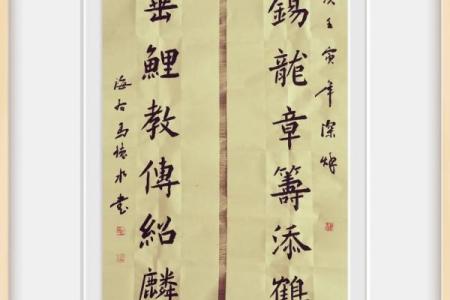 壬寅年深秋
錫龍章籌添鶴
垂鯉教傳紹麟
海右馬水書